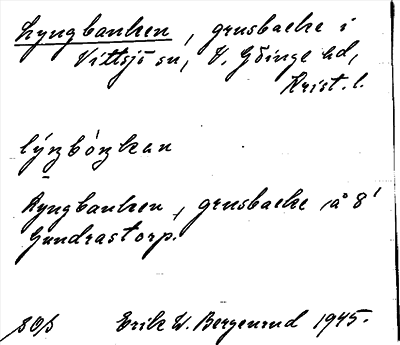 Lyngbanken, grusbacke i
Vittsjö sn, V. Göinge hd,
Krist. l.
lýŋbóŋkan
Ryngbanken, grusbacke på 8¹
Gundrastorp.
Erik W. Bergenrud 1945.